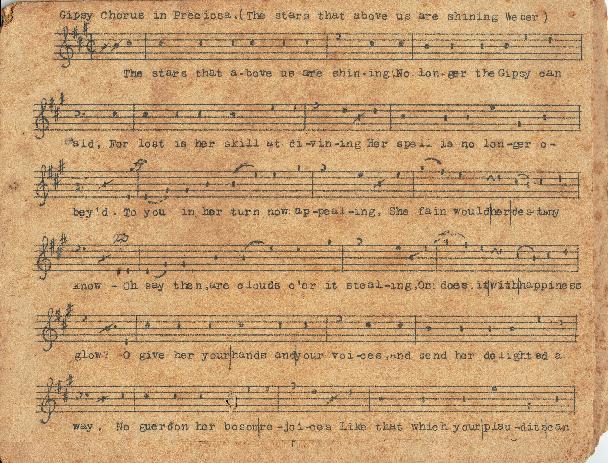 Gipsy Chorus in Preciosa.(The stars that above us are shining Weber )
The stars that a-bove us are shin-ing,No lon-ger the Gipsy can
aid, For lost is her skill at di-vin-ing Her spell is no lon-ger o-
bey'd. To you in her turn now ap-peal-ing, She fain would her destiny
know - Oh say then,are clouds o'er it steal-ing,Or does it with happiness
glow? O give her your hands and your voi-ces,and send her delighted a
way. No guerdon her bosom re-joi-ces Like that which your plau-dits can